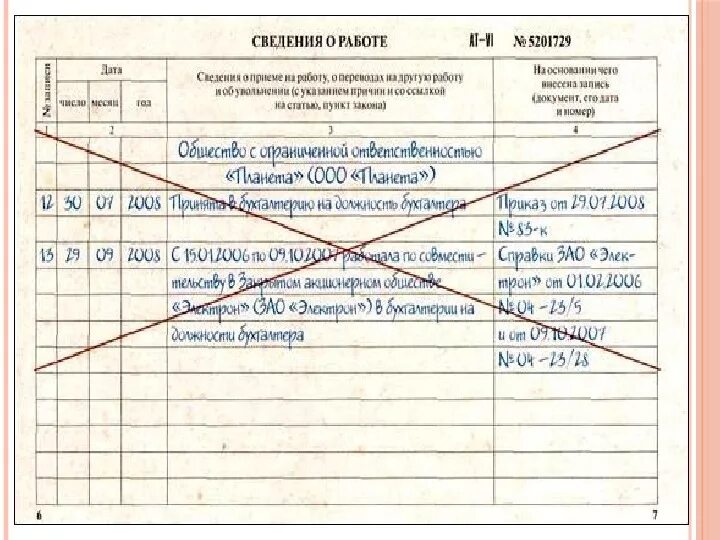 СВЕДЕНИЯ О РАБОТЕ АТ-VI № 5201729
№ записи
Дата
число месяц год
Сведения о приеме на работу, о переводах на другую работу
и об увольнении (с указанием причин и со ссылкой
на статью, пункт закона)
На основании чего
внесена запись
(документ, его дата
и номер)
1 2 3 4
Общество с ограниченной ответственностью
«Планета» (ООО «Планета»)
12 30 07 2008 Принята в бухгалтерию на должность бухгалтера Приказ от 29.07.2008
№ 83-к
13 29 09 2008 С 15.01.2006 по 09.10.2007 работала по совмести- Справки ЗАО «Элек-
тельству в Закрытом акционерном обществе трон» от 01.02.2006
«Электрон» (ЗАО «Электрон») в бухгалтерии на № 04-23/5
должности бухгалтера и от 09.10.2007
№ 04-23/28
6 7